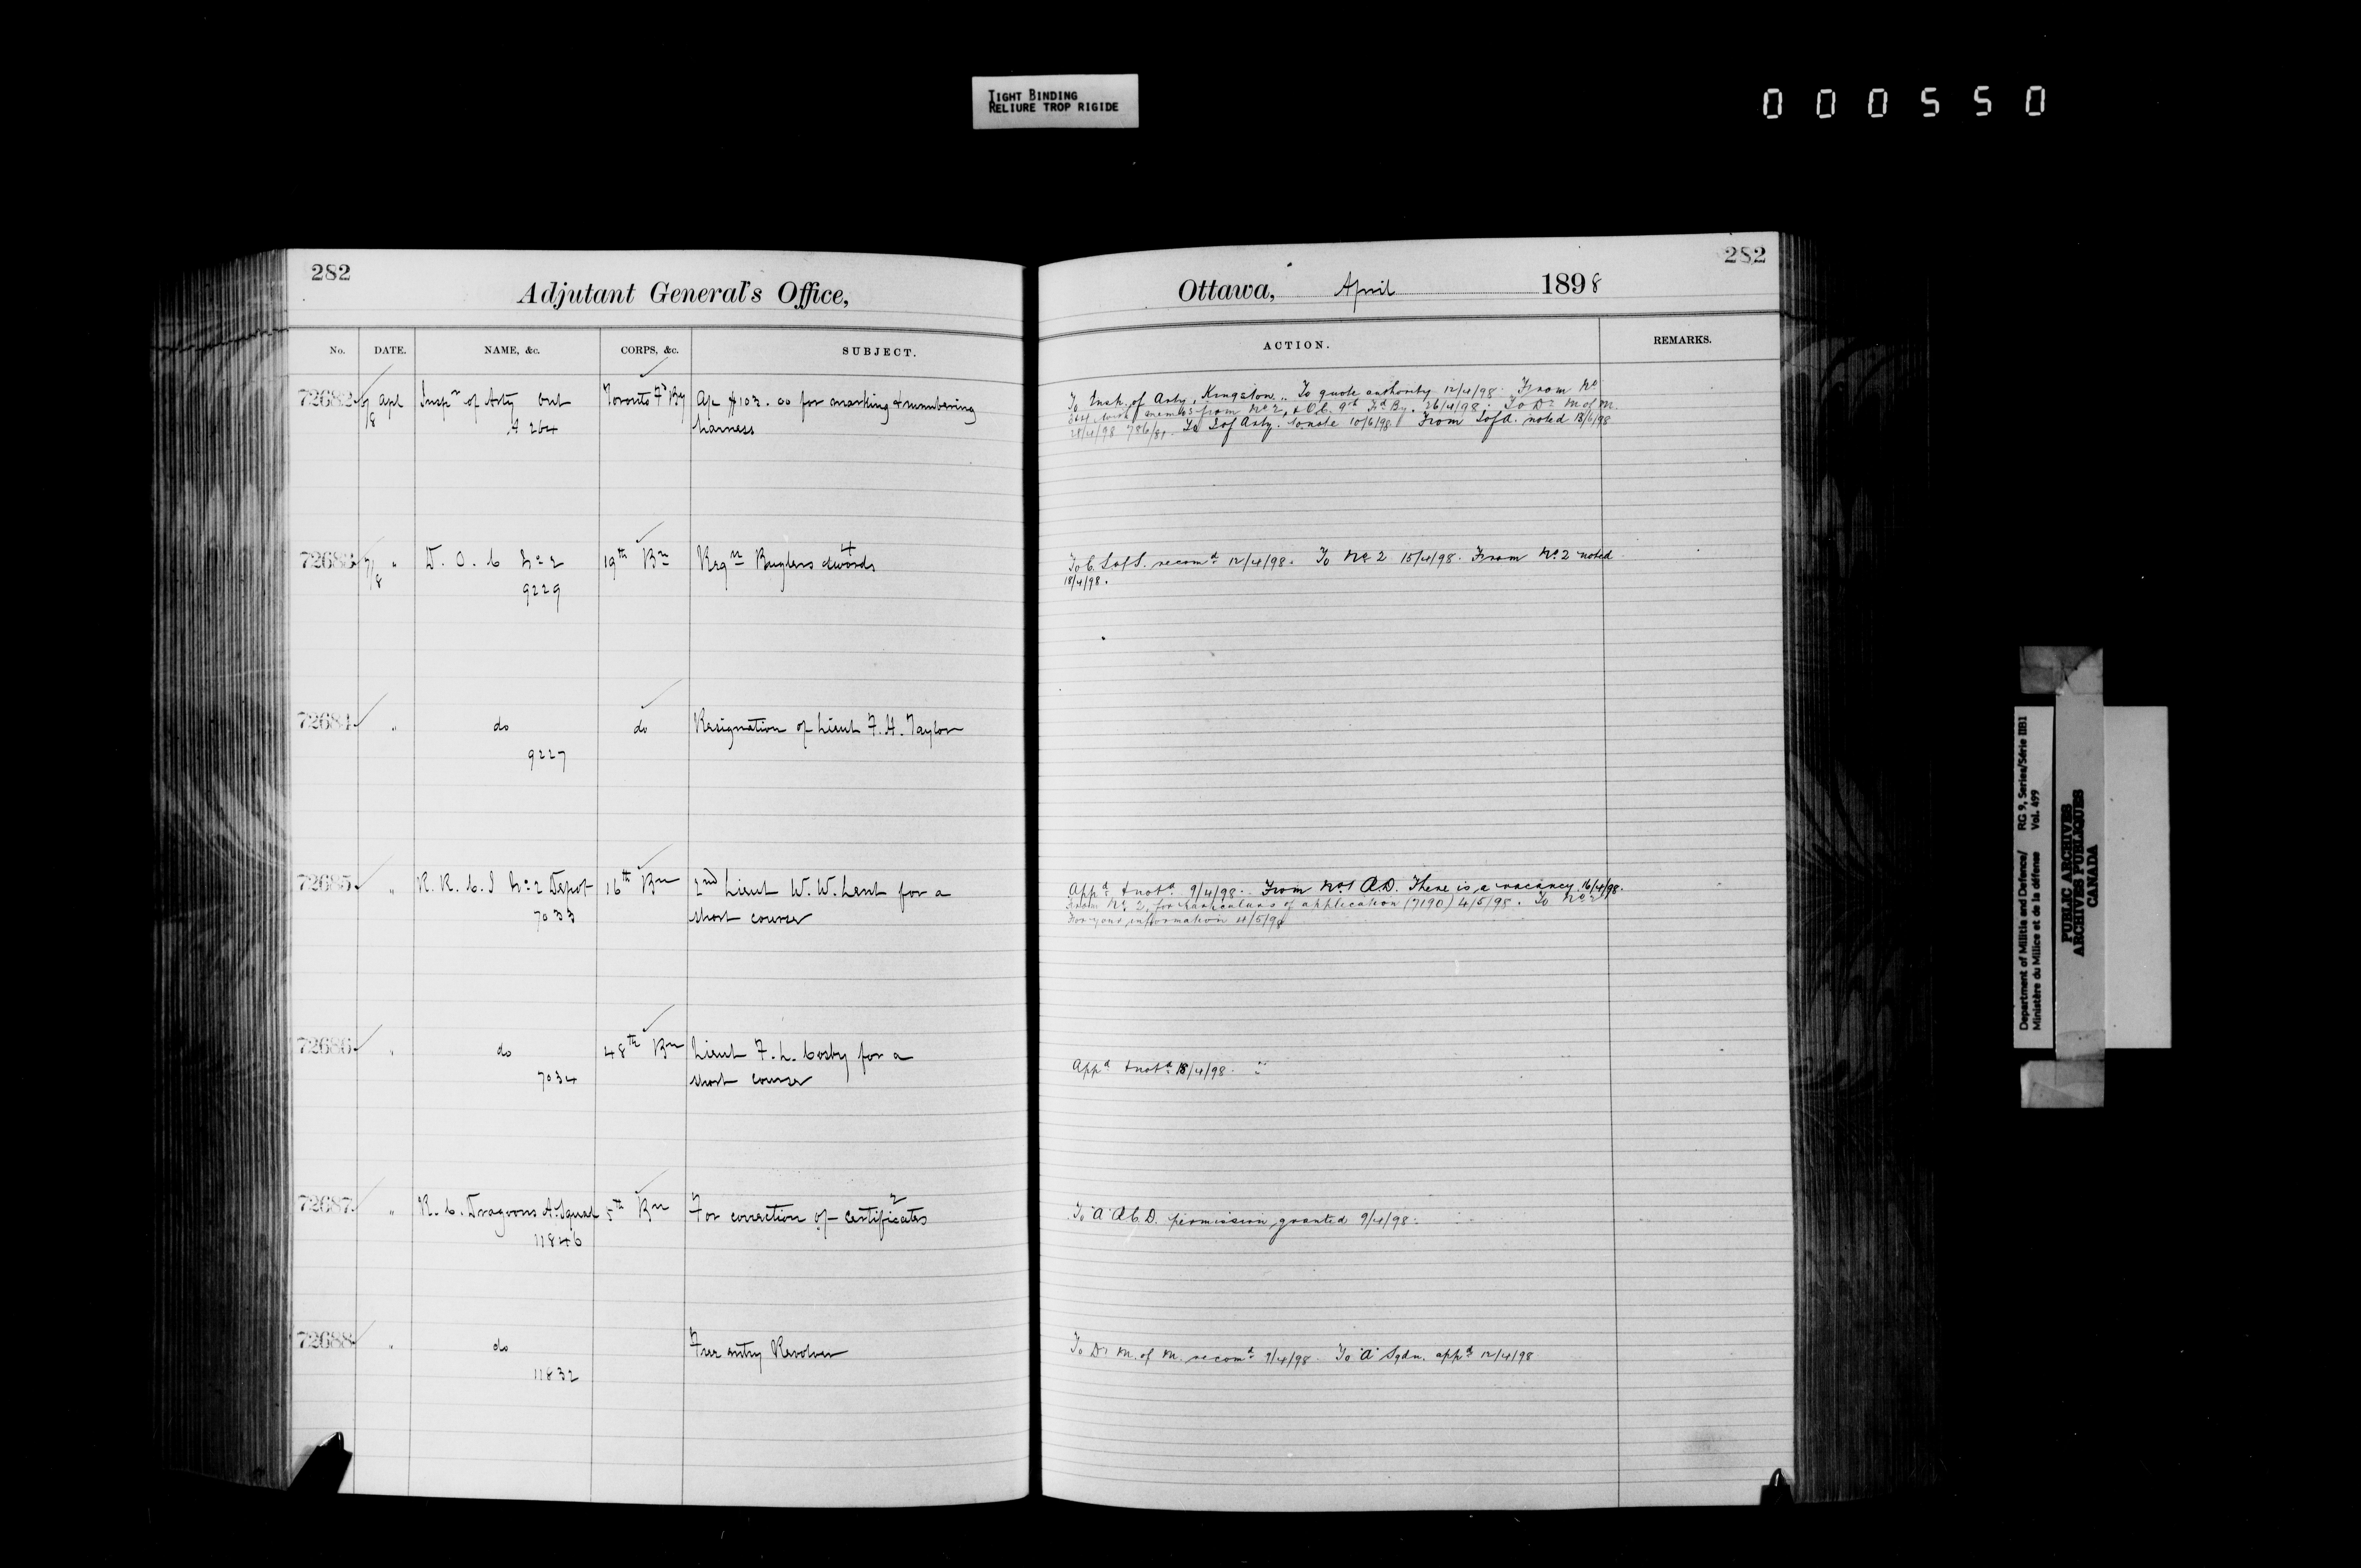 TIGHT BINDING
RELIURE TROP RIGIDE
000550
282
Adjutant General's Office,
No. DATE. NAME, &c. CORPS, &c. SUBJECT.
72682 7/8 Apl Inspr of Arty Ont Toronto Fd By Ap $103.00 for marking & numbering
A 264 harness
72683 7/8 " D. O. C No 2 19th Bn Reqn Buglers swords 4
9229
72684 " do do Resignation of Lieut F. H. Taylor
9227
72685 " R. R. C. I No 2 Depot 16th Bn 2nd Lieut W. W. Lent for a
7033 short course
72686 " do 48th Bn Lieut F. L. Cosby for a
7034 short course
72687 " R. C. Dragoons A. Squad 5th Bn For correction of 2 certificates
11846
72688 " do Free entry Revolver
11832
282
Ottawa, April 1898
ACTION. REMARKS.
To Insp. of Arty, Kingston. To quote authority 12/4/98. From No
memos from No 2, & O.C. 9th Fd By. 26/4/98. To Dr M. of M.
28/4/98 To I of Arty. to note 10/6/98. From I of A. noted 13/6/98
To C. S of S. recomd 12/4/98. To No 2 15/4/98. From No 2 noted
18/4/98.
Appd & notd 9/4/98. From No 1 A.D. There is a vacancy 16/4/98.
From No 2, for particulars of application (7190) 4/5/98. To No 2
For your information 4/5/98
Appd & notd 18/4/98.
To "A" R.C.D. permission granted 9/4/98.
To Dr M. of M. recomd 9/4/98 To "A" Sqdn. appd 12/4/98
Department of Militia and Defence/ RG 9, Series/Série IIB1
Ministère du Milice et de la défense Vol. 499
PUBLIC ARCHIVES
ARCHIVES PUBLIQUES
CANADA